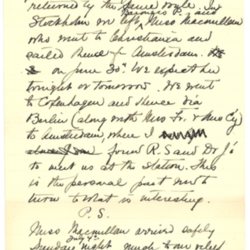 returned by the same route. In
Stockholm on left Miss Macmillan
who went to Christiania and
sailed thence to Amsterdam.
on June 30. We expect her
tonight or tomorrow. We went
to Copenhagen and thence via
Berlin (along with Miss
to Amsterdam where I
found R. S. and Dr. J's
to meet us at the station. This
is the personal part next to
turn to what is interesting.
P. S.
Miss Macmillan arrived safely
Sunday night much to our relief